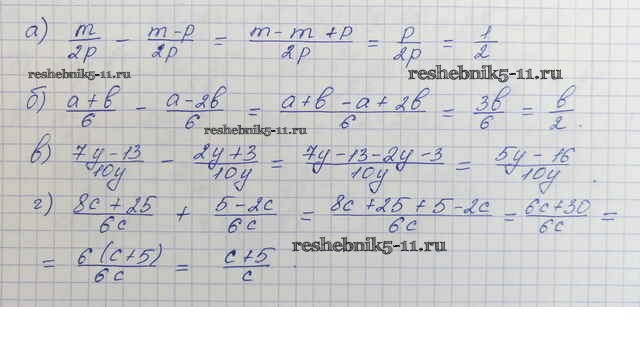 а) m/2p - m-p/2p = m-m+p/2p = p/2p = 1/2
reshebnik5-11.ru reshebnik5-11.ru
б) a+b/6 - a-2b/6 = a+b-a+2b/6 = 3b/6 = b/2.
reshebnik5-11.ru
в) 7y-13/10y - 2y+3/10y = 7y-13-2y-3/10y = 5y-16/10y.
г) 8c+25/6c + 5-2c/6c = 8c+25+5-2c/6c = 6c+30/6c =
reshebnik5-11.ru
= 6(c+5)/6c = c+5/c.